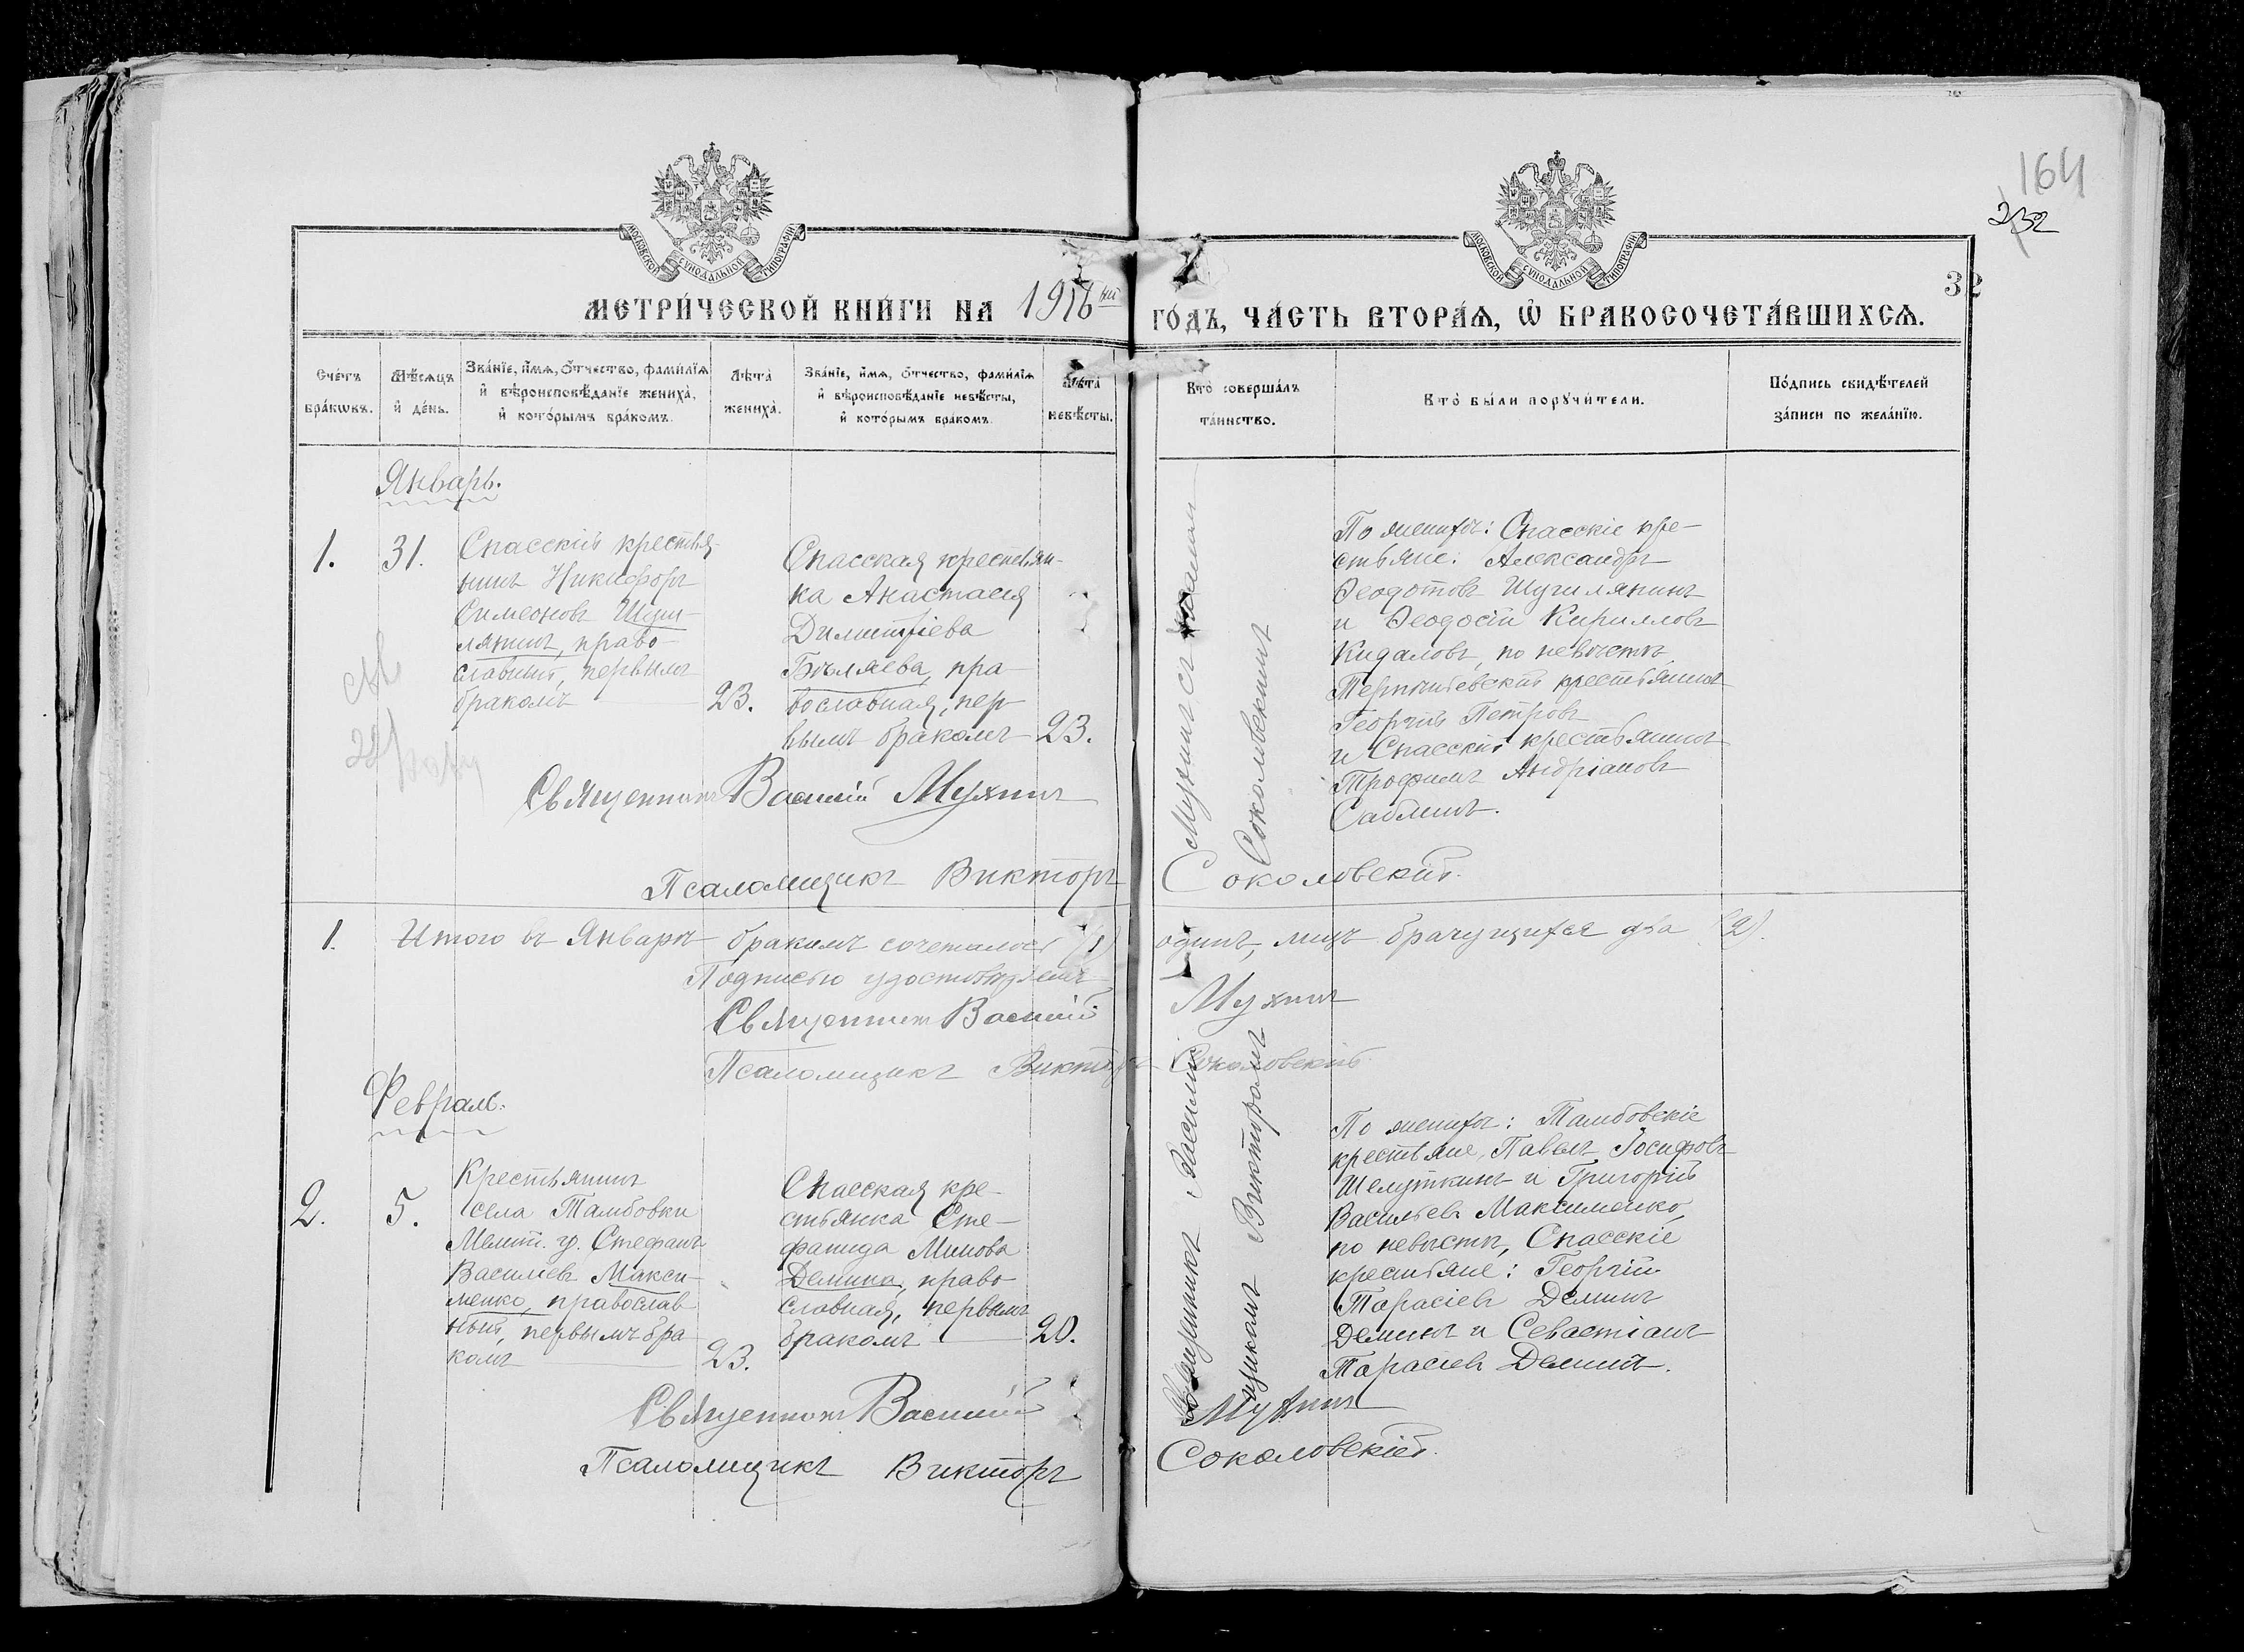 164
232
32
МОСКОВСКОЙ СѴНОДАЛЬНОЙ ТИПОГРАФІИ
МОСКОВСКОЙ СѴНОДАЛЬНОЙ ТИПОГРАФІИ
МЕТРИ́ЧЕСКОЙ КНИ́ГИ НА 1918 ый
ГО́ДЪ, ЧА́СТЬ ВТОРА́Ѧ, Ѡ҆ БРАКОСОЧЕТА́ВШИХСѦ.
Сче́тъ бра́кѡвъ.
Мѣ́сѧцъ и҆ де́нь.
Зва́нїе, и҆́мѧ, ѻ҆́тчество, фами́лїѧ
и҆ вѣроисповѣ́данїе жениха̀,
и҆ кото́рымъ бра́комъ.
Лѣ́та жениха̀.
Зва́нїе, и҆́мѧ, ѻ҆́тчество, фами́лїѧ
и҆ вѣроисповѣ́данїе невѣ́сты,
и҆ кото́рымъ бра́комъ.
Лѣ́та невѣ́сты.
Кто̀ соверша́лъ
та́инство.
Кто̀ бы́ли порꙋчи́тели.
По́дпись свидѣ́телей
за́писи по жела́нїю.
Январь.
1.
31.
Спасскій крестья-
нинъ Никифоръ
Симеоновъ Шуми-
лянинъ, право-
славный, первымъ
бракомъ
23.
Спасская крестьян-
ка Анастасія
Димитріева
Бѣляева, пра-
вославная, пер-
вымъ бракомъ
23.
Мухинъ съ
Соколовскимъ
По женихѣ: Спасскіе кре-
стьяне: Александръ
Ѳеодотовъ
и Ѳеодосій Кирилловъ
Кидаловъ, по невѣстѣ
крестьянинъ
Георгій Петровъ
и Спасскій крестьянинъ
Трофимъ Андріановъ
Саблинъ.
Священникъ Василій Мухинъ
Псаломщикъ Викторъ Соколовскій.
1. Итого въ Январѣ бракомъ сочеталось (1) одинъ, лицъ брачущихся два (2).
Подписью удостовѣряемъ
Священникъ Василій Мухинъ
Псаломщикъ Викторъ Соколовскій
Февраль.
2.
5.
Крестьянинъ
села Тамбовки
Мелит. у. Стефанъ
Васильевъ Макси-
менко, православ
ный, первымъ бра
комъ
23.
Спасская кре-
стьянка Сте-
фанида Минова
Демина, право
славная, первымъ
бракомъ
20.
Священникъ Василій
Викторомъ
По женихѣ: Тамбовскіе
крестьяне, Павелъ Іосифовъ
Шелуткинъ и Григорій
Васильевъ Максименко,
по невѣстѣ, Спасскіе
крестьяне: Георгій
Тарасіевъ Деминъ
Деминъ и Севастіанъ
Тарасіевъ Деминъ.
Священникъ Василій Мухинъ
Псаломщикъ Викторъ Соколовскій.